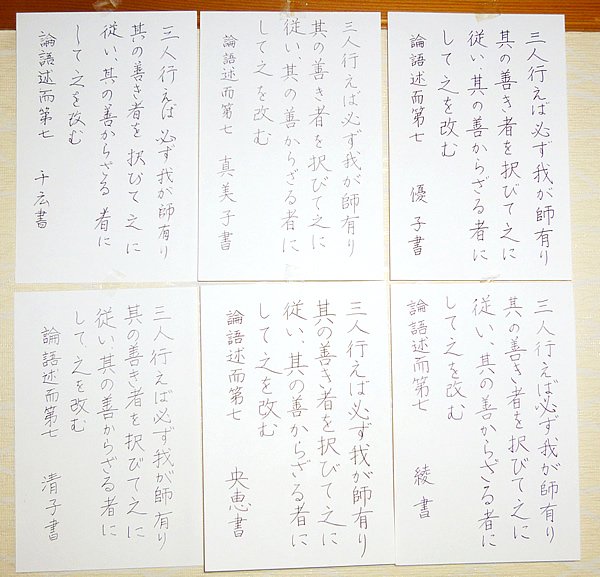 三人行えば必ず我が師有り
其の善き者を択びて之に
従い、其の善からざる者に
して之を改む
論語述而第七 優子書
三人行えば必ず我が師有り
其の善き者を択びて之に
従い、其の善からざる者に
して之を改む
論語述而第七 真美子書
三人行えば必ず我が師有り
其の善き者を択びて之に
従い、其の善からざる者に
して之を改む
論語述而第七 千広書
三人行えば必ず我が師有り
其の善き者を択びて之に
従い、其の善からざる者に
して之を改む
論語述而第七 綾書
三人行えば必ず我が師有り
其の善き者を択びて之に
従い、其の善からざる者に
して之を改む
論語述而第七 央恵書
三人行えば必ず我が師有り
其の善き者を択びて之に
従い、其の善からざる者に
して、之を改む
論語述而第七 清子書